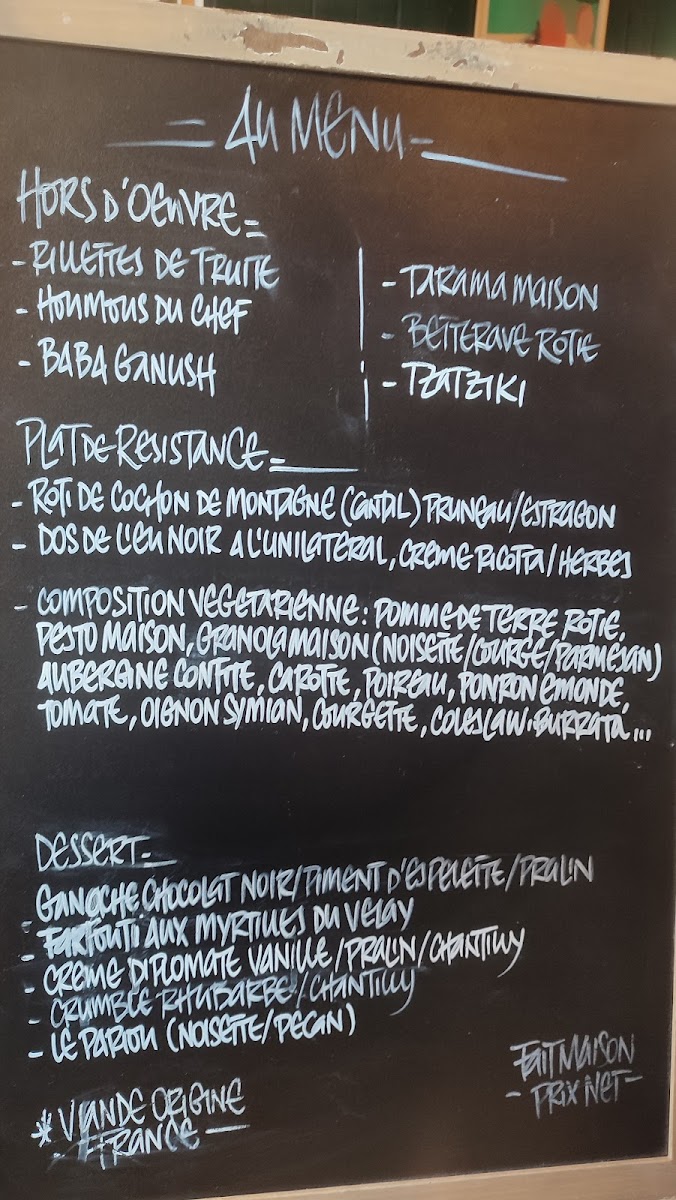 AU MENU
HORS D'OEUVRE
- RILLETTES DE TRUITE
- HOUMOUS DU CHEF
- BABA GANUSH
- TARAMA MAISON
- BETTERAVE ROTIE
- TZATZIKI
PLAT DE RESISTANCE
- ROTI DE COCHON DE MONTAGNE (CANTAL) PRUNEAU/ESTRAGON
- DOS DE LIEU NOIR A L'UNILATERAL, CREME RICOTTA/HERBES
- COMPOSITION VEGETARIENNE: POMME DE TERRE ROTIE,
PESTO MAISON, GRANOLA MAISON (NOISETTE/COURGE/PARMESAN)
AUBERGINE CONFITE, CAROTTE, POIREAU, POIVRON EMONDE,
TOMATE, OIGNON SYMIAN, COURGETTE, COLESLAW. BURRATA...
DESSERT
- GANACHE CHOCOLAT NOIR/PIMENT D'ESPELETTE/PRALIN
- FARFOUTI AUX MYRTILLES DU VELAY
- CREME DIPLOMATE VANILLE/PRALIN/CHANTILLY
- CRUMBLE RHUBARBE/CHANTILLY
- LE PARIOU (NOISETTE/PECAN)
* VIANDE ORIGINE
- FRANCE -
FAIT MAISON
- PRIX NET -